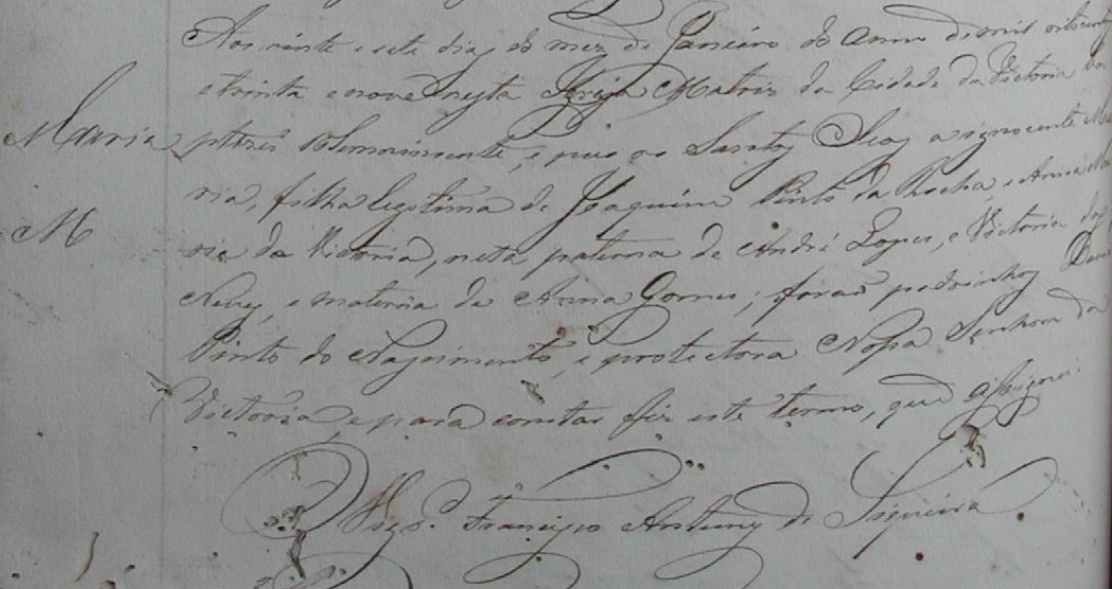 Aos vinte e sete dias do mez de Janeiro do anno de mil oitocentos
e trinta e nove nesta Igreja Matriz da Cidade da Victoria bap
Maria ptizei solemnimente, e puz os Santos Oleos a ignocente Ma
ria, filha legitima de Joaquim Pinto da Rocha e Anna Ma
M ria da Victoria, neta paterna de André Lopes, e Victoria das
Neves, e materna de Anna Gomes; foraõ padrinhos
Pinto do Nascimento, e protectora Nossa Senhora da
Victoria, e para constar fiz este termo, que assignei.
Vigr.º Francisco Antunes de Siqueira